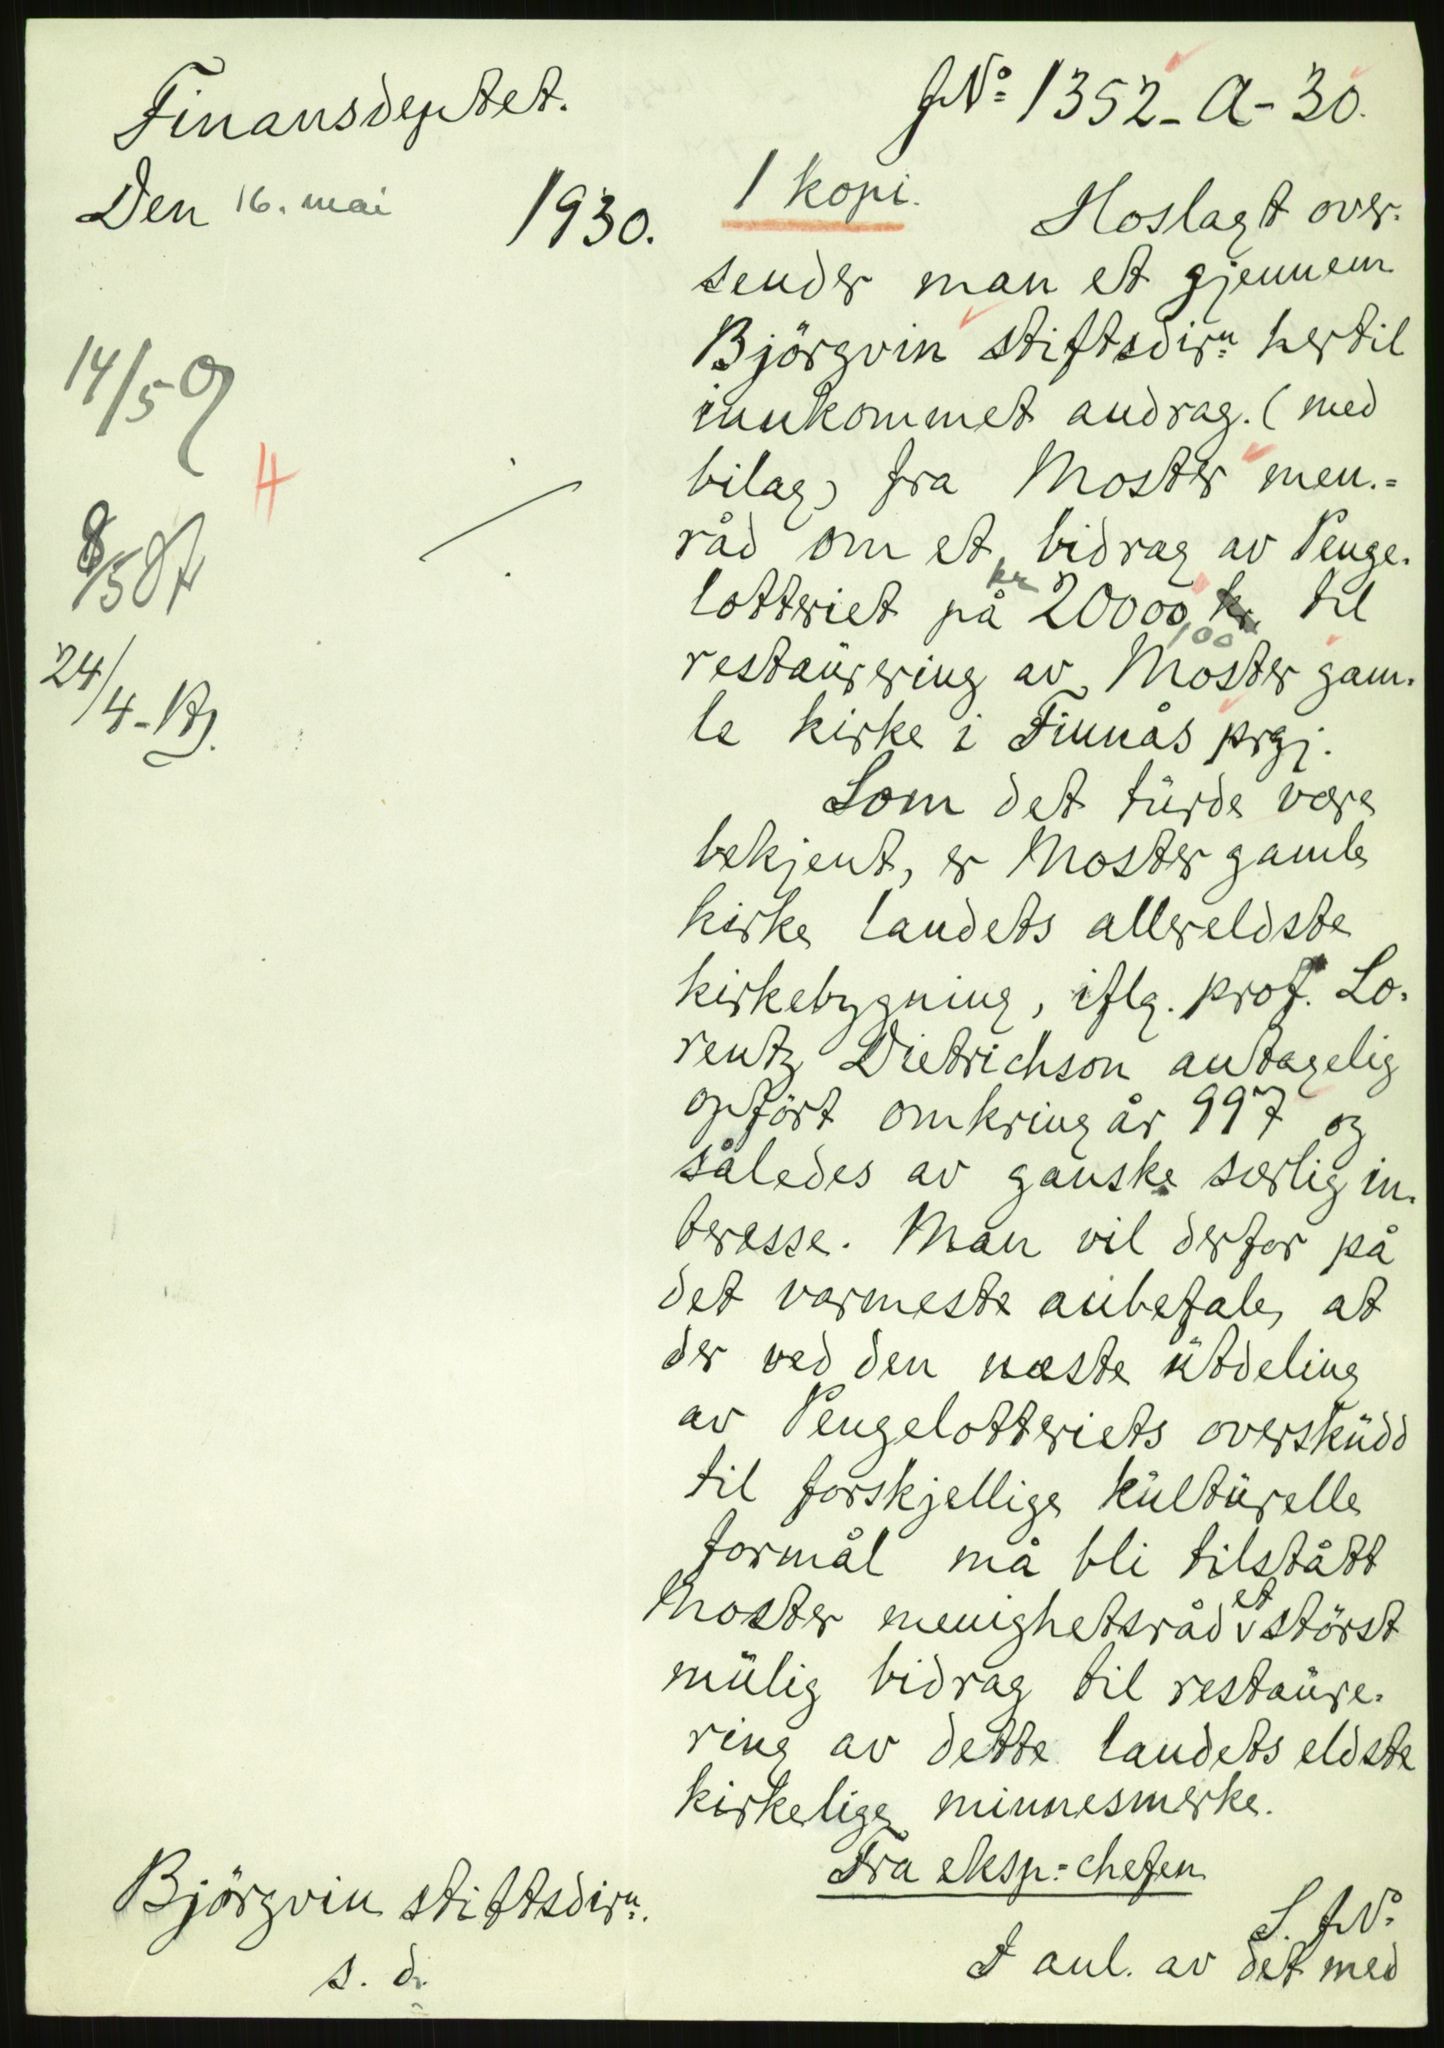 Finansdeptet.
Den 16. mai 1930.
14/5
4
8/5
24/4
JNº 1352-A-30.
1 kopi.
Hoslagt over-
sender man et gjennem
Björgvin stiftsdirn. hertil
innkommet andrag. (med
bilag) fra Moster men.=
råd om et bidrag av Penge-
lotteriet på kr 20000 kr. til
100
restaurering av Moster gam-
le kirke i Finnås prgj.
Som det turde være
bekjent, er Moster gamle
kirke landets allereldste
kirkebygning, iflg. prof. Lo-
rentz Dietrichson antagelig
opfört omkring år 997 og
således av ganske særlig in-
teresse. Man vil derfor på
det varmeste anbefale, at
der ved den næste utdeling
av Pengelotteriets overskudd
til forskjellige kulturelle
formål må bli tilstått
Moster menighetsråd et störst
mulig bidrag til restaure-
ring av dette landets eldste
kirkelige minnesmerke.
Fra eksp.=chefen
Björgvin stiftsdirn.
s. d.
S. JNº
I anl. av det med